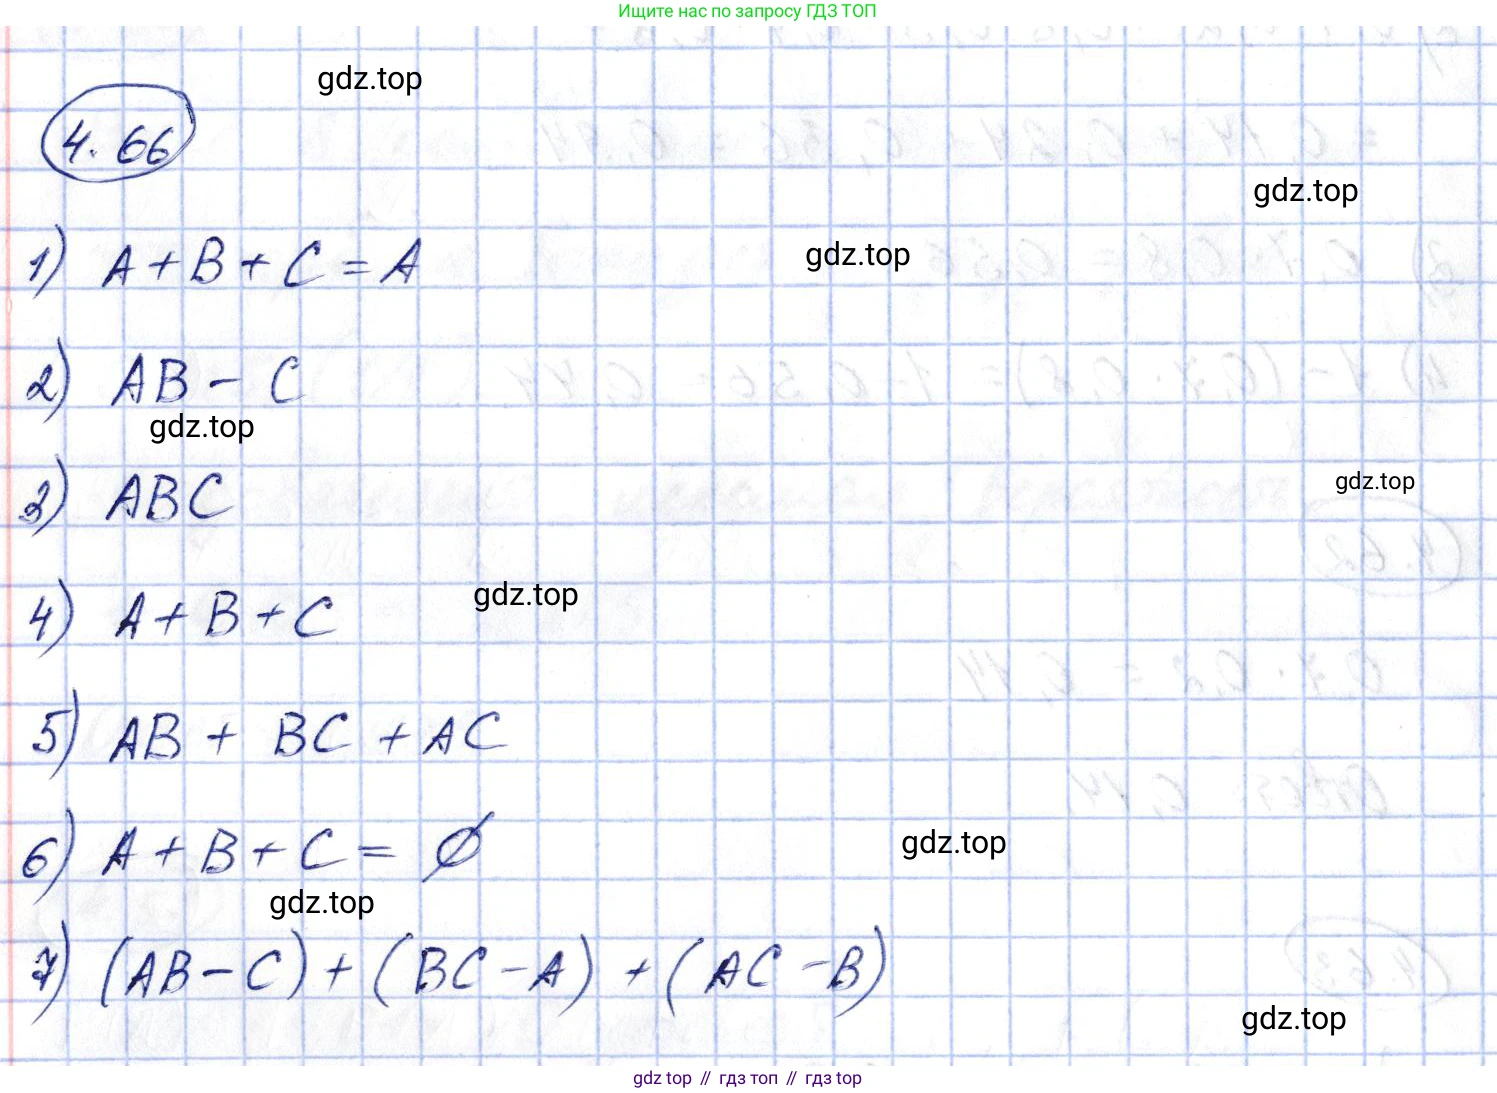 Ищите нас по запросу ГДЗ ТОП
gdz.top
4.66
gdz.top
1) A + B + C = A
gdz.top
2) AB - C
gdz.top
3) ABC
gdz.top
4) A + B + C
gdz.top
5) AB + BC + AC
6) A + B + C = ∅
gdz.top
gdz.top
7) (AB - C) + (BC - A) + (AC - B)
gdz.top
gdz top // гдз топ // гдз top